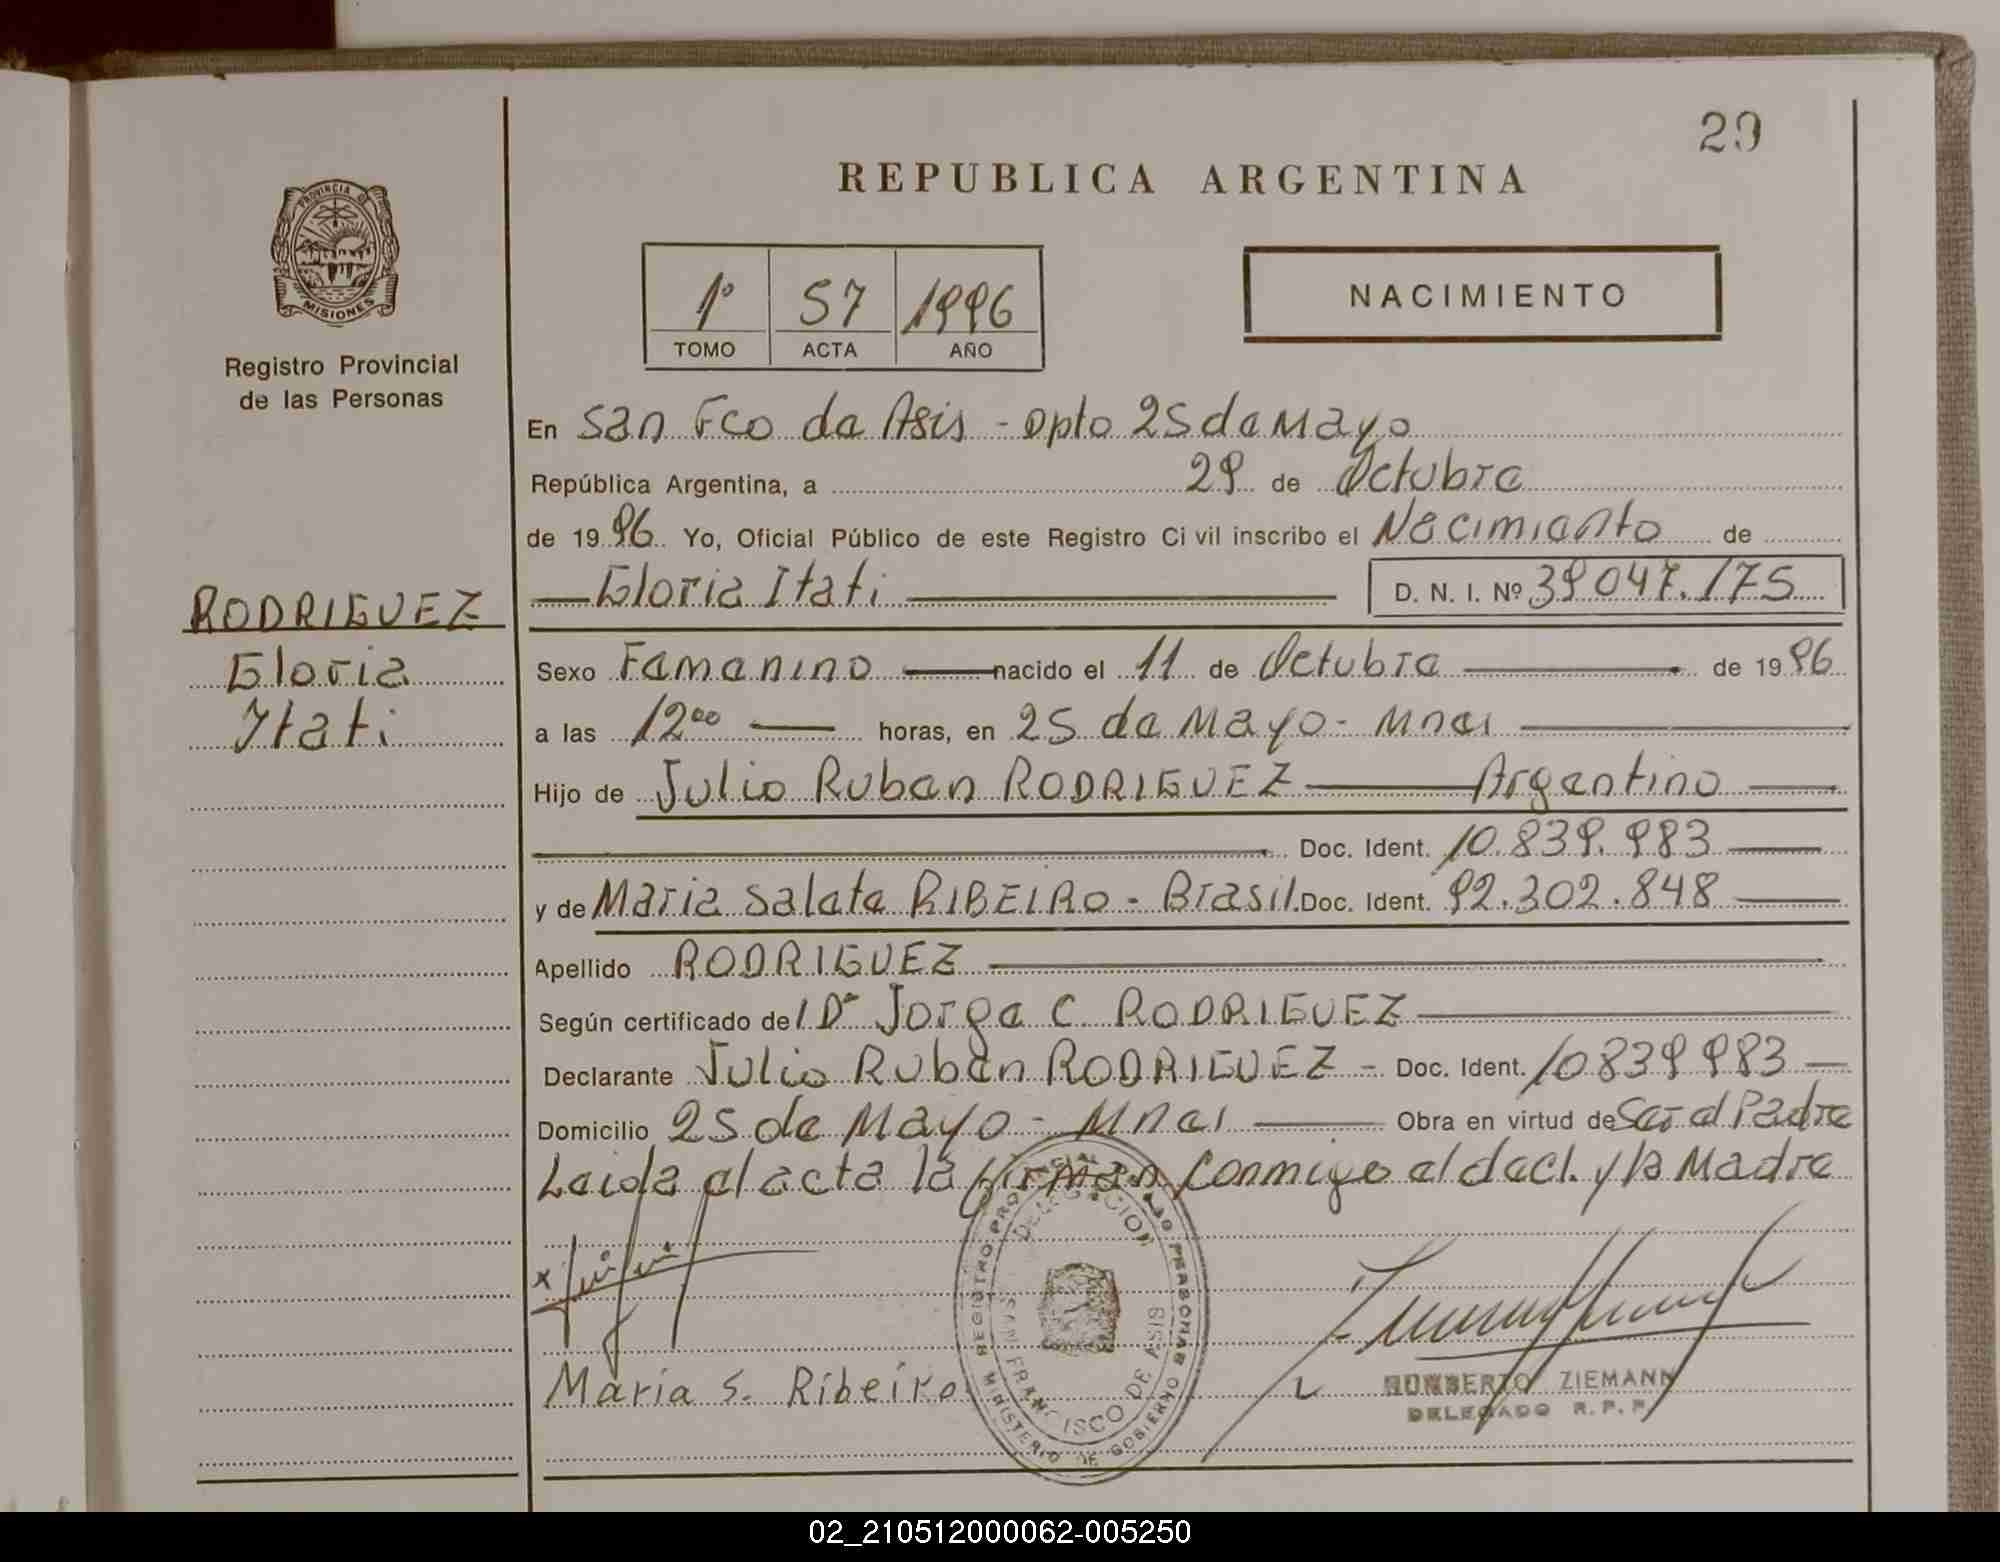 29
REPUBLICA ARGENTINA
PROVINCIA DE
MISIONES
1º 57 1996
TOMO ACTA AÑO
NACIMIENTO
Registro Provincial
de las Personas
En San Fco de Asis - Dpto 25 de Mayo
República Argentina, a 29 de Octubre
de 1996 Yo, Oficial Público de este Registro Civil inscribo el Nacimiento de
Gloria Itati D. N. I. Nº 39047.175
RODRIGUEZ
Gloria
Itati
Sexo Femenino nacido el 11 de Octubre de 1996
a las 12⁰⁰ horas, en 25 de Mayo - Mnes
Hijo de Julio Ruben RODRIGUEZ Argentino
Doc. Ident. 10.839.983
y de Maria Salete RIBEIRO - Brasil. Doc. Ident. 92.302.848
Apellido RODRIGUEZ
Según certificado del Dr Jorge C RODRIGUEZ
Declarante Julio Ruben RODRIGUEZ - Doc. Ident. 10839983
Domicilio 25 de Mayo - Mnes Obra en virtud de Ser el Padre
Leida el acta la firman conmigo el decl. y la Madre
x
Maria S. Ribeiro
REGISTRO PROVINCIAL DE LAS PERSONAS
MINISTERIO DE GOBIERNO
DELEGACION
SAN FRANCISCO DE ASIS
HUMBERTO ZIEMANN
DELEGADO R. P. P.
02_210512000062-005250